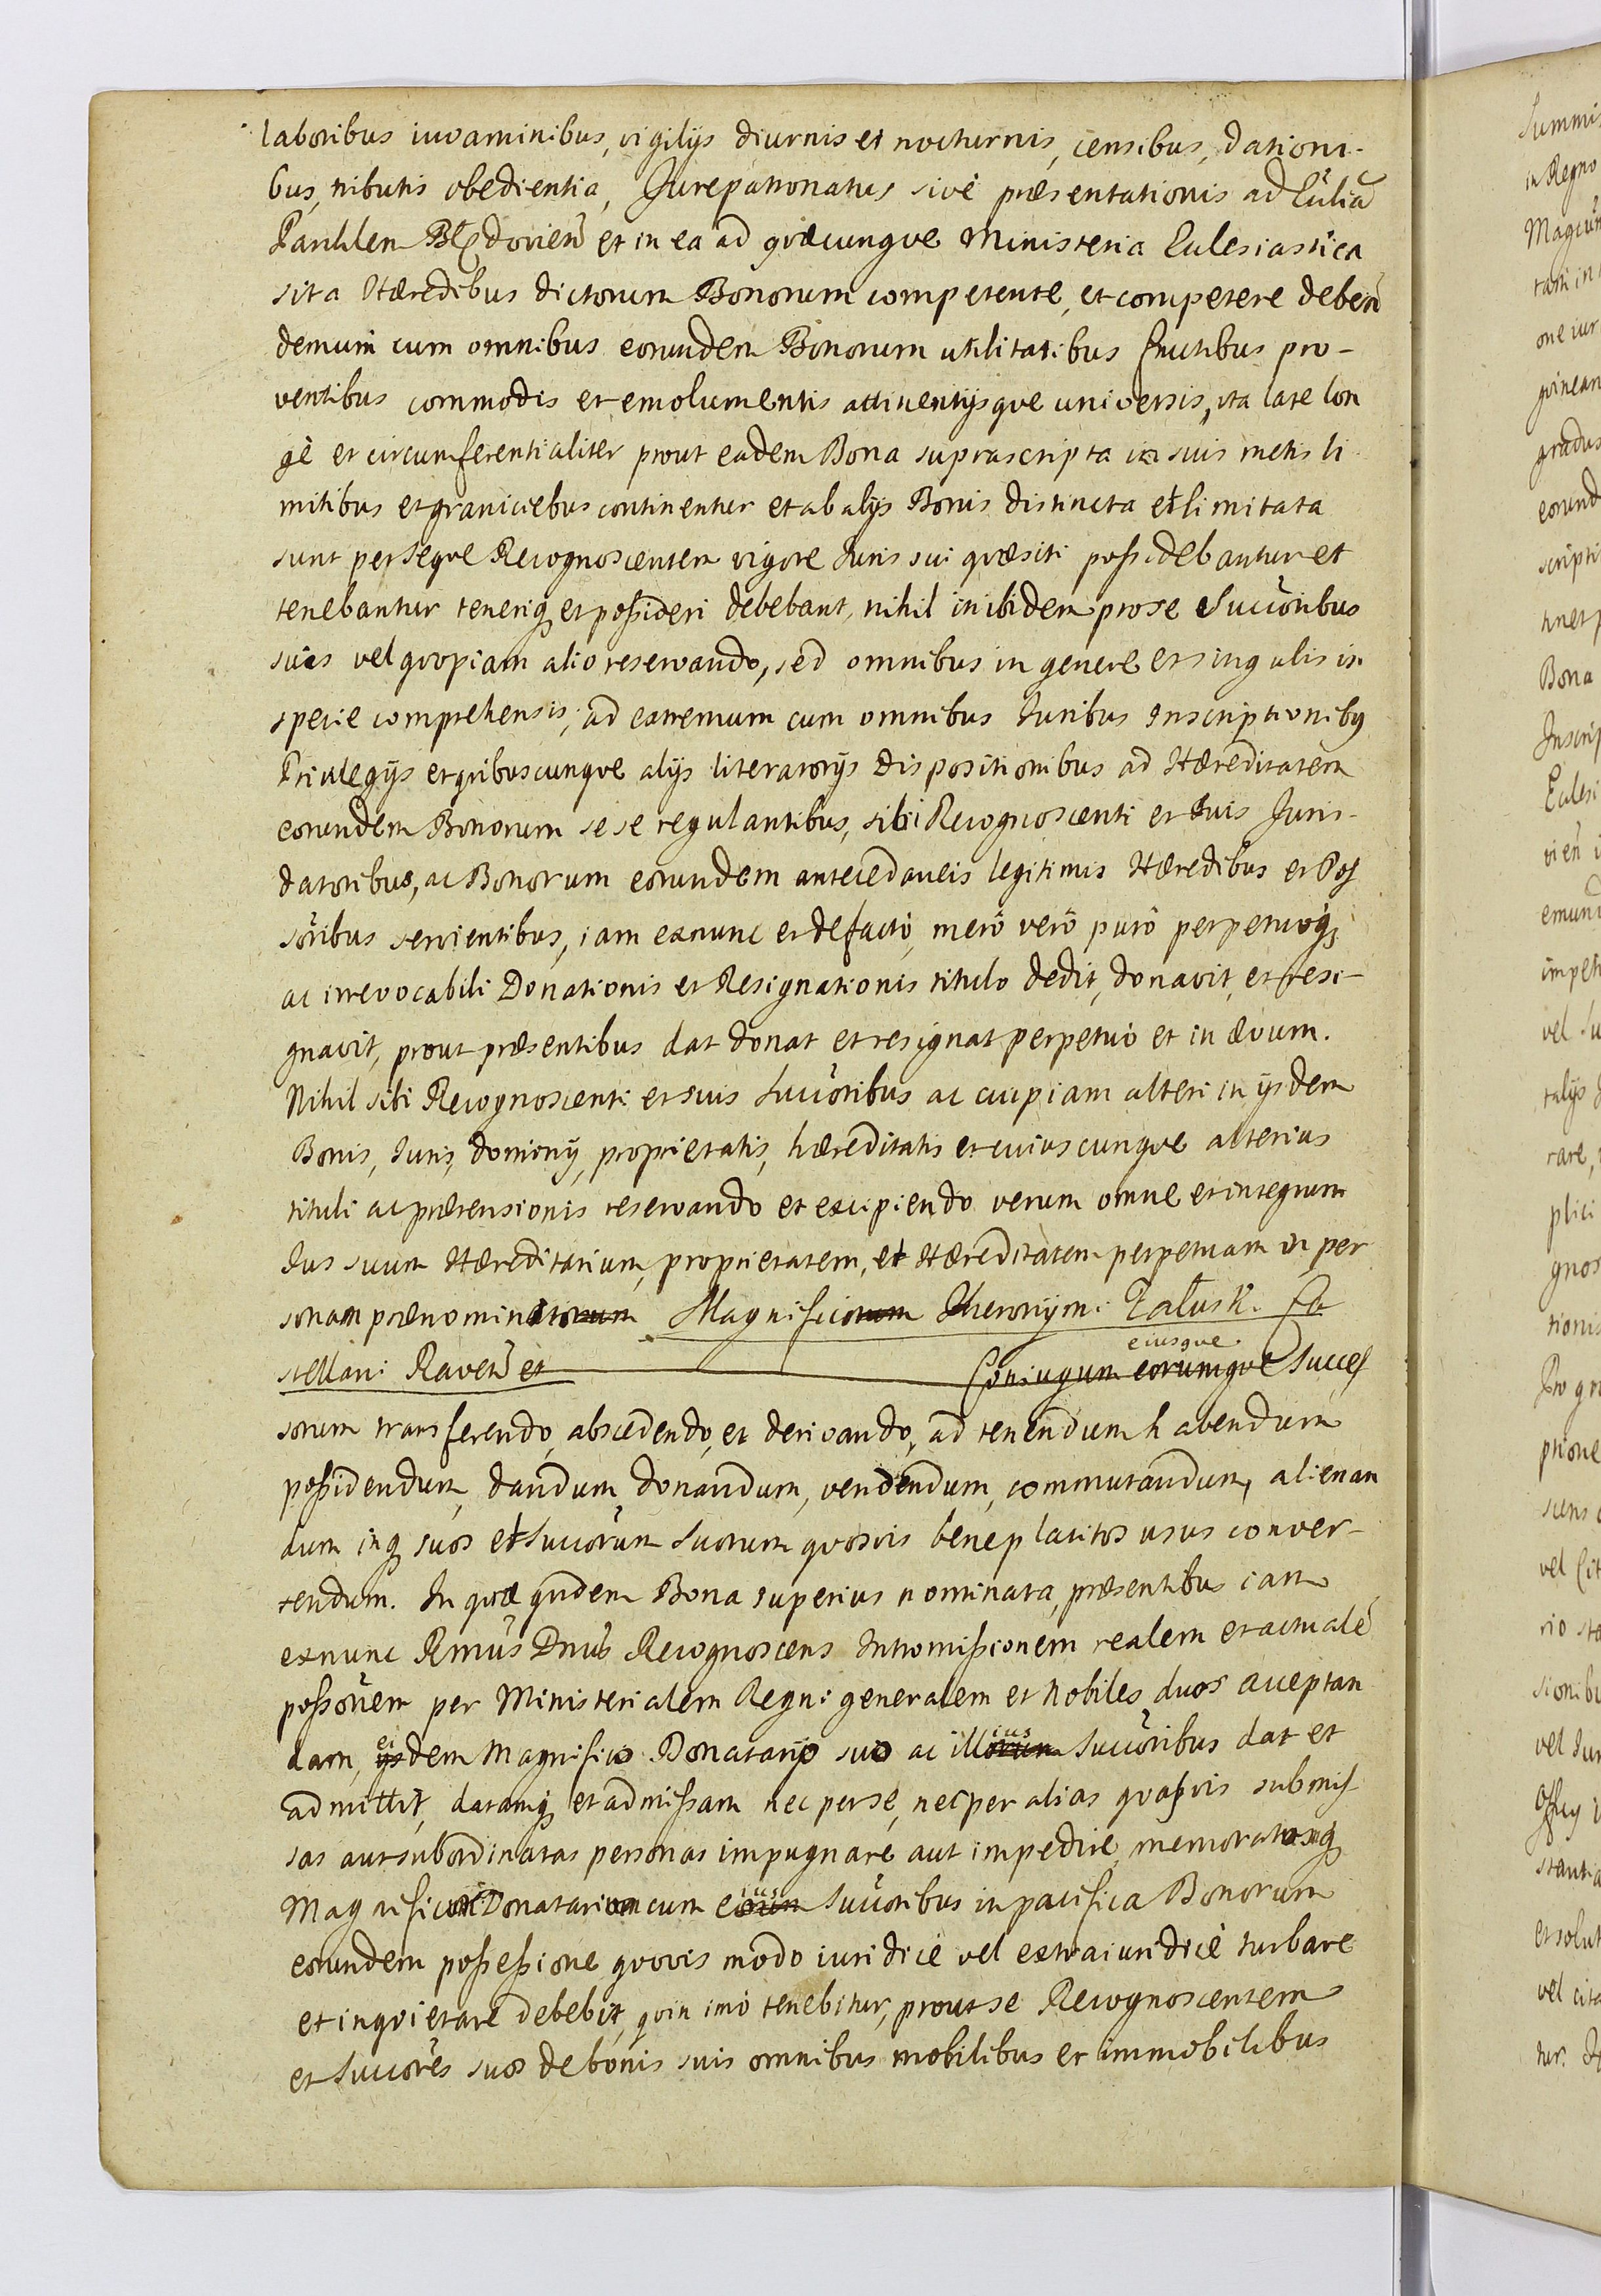 laboribus iuvaminibus, vigilijs diurnis et nocturnis, censibus, dationi-
bus, tributis obedientia, Jurepatronatus sivè præsentationis ad Eccliã
Parchlem Błędovień et in ea ad quæcunque Ministeria Ecclesiastica
sita Hæredibus dictorum Bonorum competente, et competere debeñ
demum cum omnibus eorundem Bonorum utilitatibus fructibus pro-
ventibus commodis et emolumentis attinentijsque universis, ita late lon
gè et circumferentialiter prout eadem Bona suprascripta in suis metis li
mitibus et graniciebus continentur et ab alijs Bonis distincta et limitata
sunt per seque Recognoscentem vigore Juris sui quæsiti possidebantur et
tenebantur teneriq et possideri debebant, nihil inibidem pro se Succoribus
suis vel quopiam alio reservando, sed omnibus in genere et singulis in
specie comprehensis, ad extremum cum omnibus Juribus Inscriptionibq
Privilegijs et quibuscunque alijs literatorijs dispositionibus ad Hæreditatem
eorundem Bonorum sese regulantibus, sibi Recognoscenti et suis Juris-
datoribus, ac Bonorum eorundem antecedaneis legitimis Hæredibus et Pos
soribus servientibus, iam exnunc et de facto, merò verò purò perpetuoq
ac irrevocabili Donationis et Resignationis titulo dedit, donavit, et resi-
gnavit, prout præsentibus dat donat et resignat perpetuò et in ævum.
Nihil sibi Recognoscenti et suis Succoribus ac cuipiam alteri in ijsdem
Bonis, Juris, dominij, proprietatis, hæreditatis et cuiuscunque alterius
tituli ac prætensionis reservando et excipiendo verum omne et integrum
Jus suum Hæreditarium, proprietatem, et Hæreditatem perpetuam in per
sonam prænominatorum Magnificorum Hieronymi Załusk. Ca
stellani Raveñ et Coniugum eorumque eiusque Succes
sorum transferendo, abscedendo, et derivando, ad tenendum habendum
possidendum, dandum donandum, vendendum, commutandum, alienan
dum inq suos et Succorum suorum quosvis beneplacitos usus conver-
tendum. In quæ quidem Bona superius nominata, præsentibus iam
exnunc Rmus Dnus Recognoscens Intromissionem realem et actualẽ
possonem per Ministerialem Regni generalem et Nobiles duos acceptan
dam, ijsdem ei Magnifico Donatario suo ac illorum ius Succoribus dat et
admittit, datamq et admissam nec per se, nec per alias quasvis submis
sas aut subordinatas personas impugnare aut impedire, memoratosq
Magnificum Donatarium cum eorum ius Succoribus in pacifica Bonorum
eorundem possessione quovis modo iuridicè vel extraiuridicè turbare
et inquietare debebit, quin imò tenebitur, prout se Recognoscentem
et Succores suos de bonis suis omnibus mobilibus et immobilibus